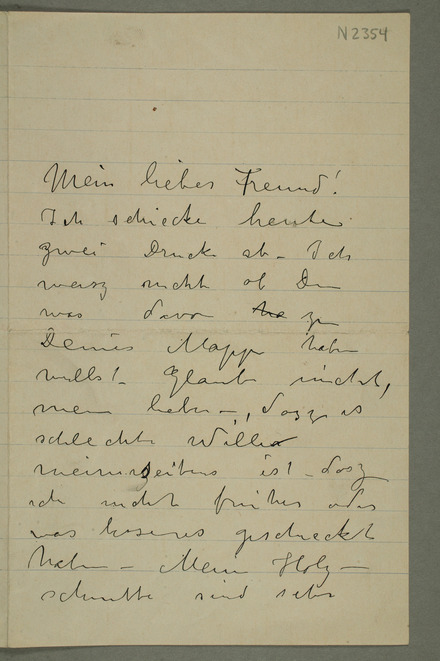 N 2354
Mein lieber Freund!
Ich schicke heute
zwei Drucke ab - Ich
weisz nicht ob Du
was davon zu
Deiner Mappe haben
willst. Glaube nicht,
mein lieber -, dasz es
schlechte Wille
meinerseitens ist - dasz
ich nicht früher oder
was besseres geschickt
habe - Meine Holz-
schnitte sind sehr